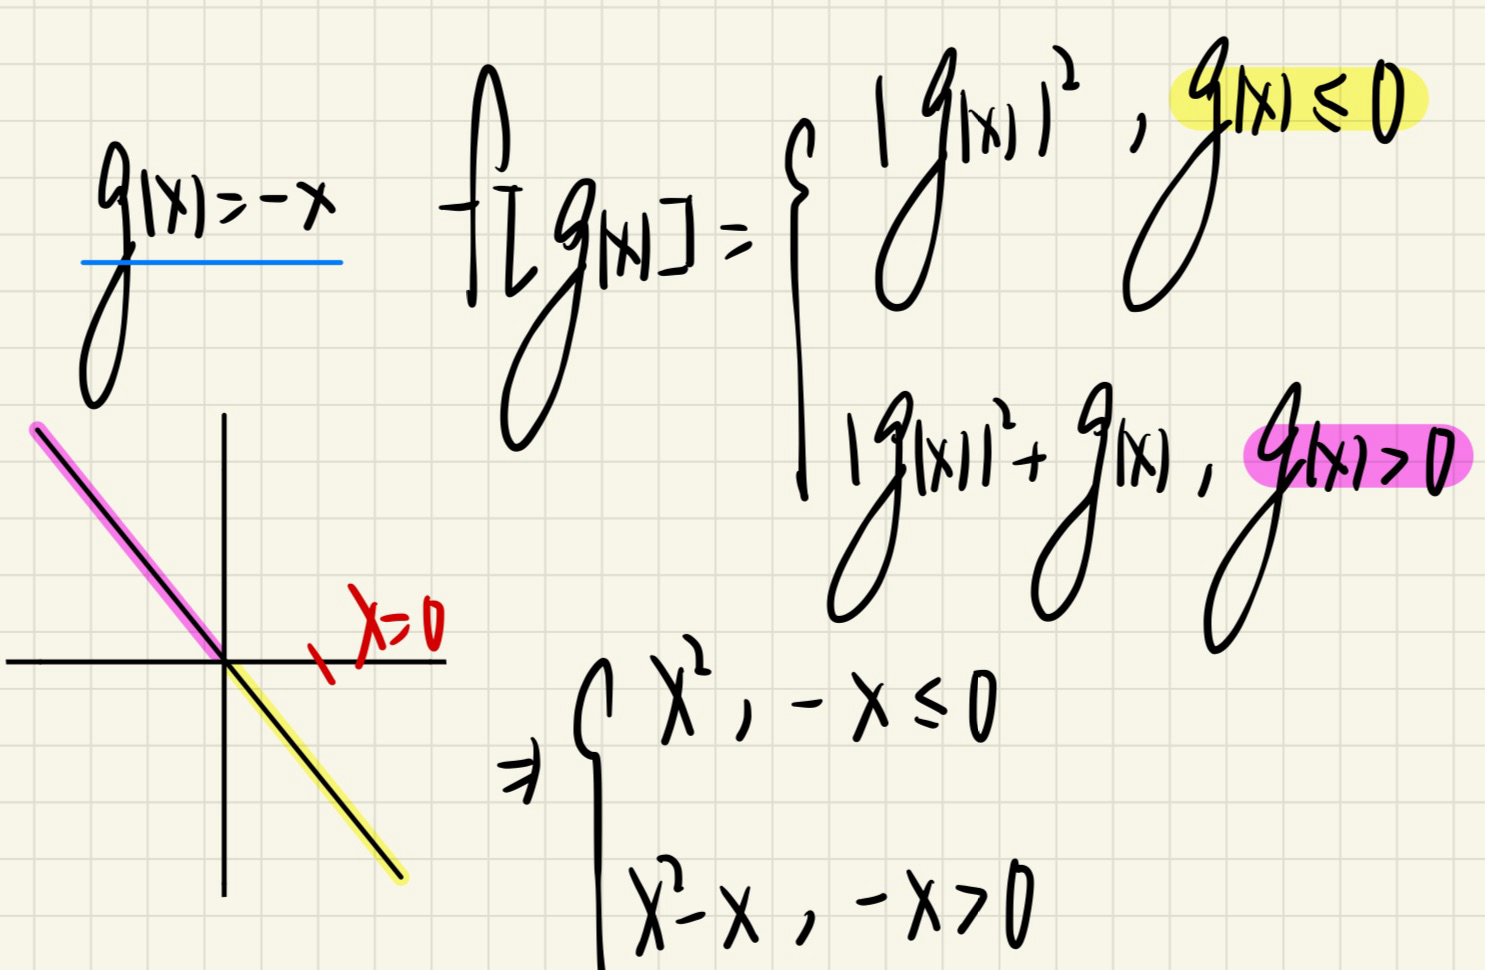 g(x)=-x
f[g(x)]= { (g(x))², g(x)≤0
(g(x))²+g(x), g(x)>0
x=0
⇒ { x², -x≤0
x²-x, -x>0